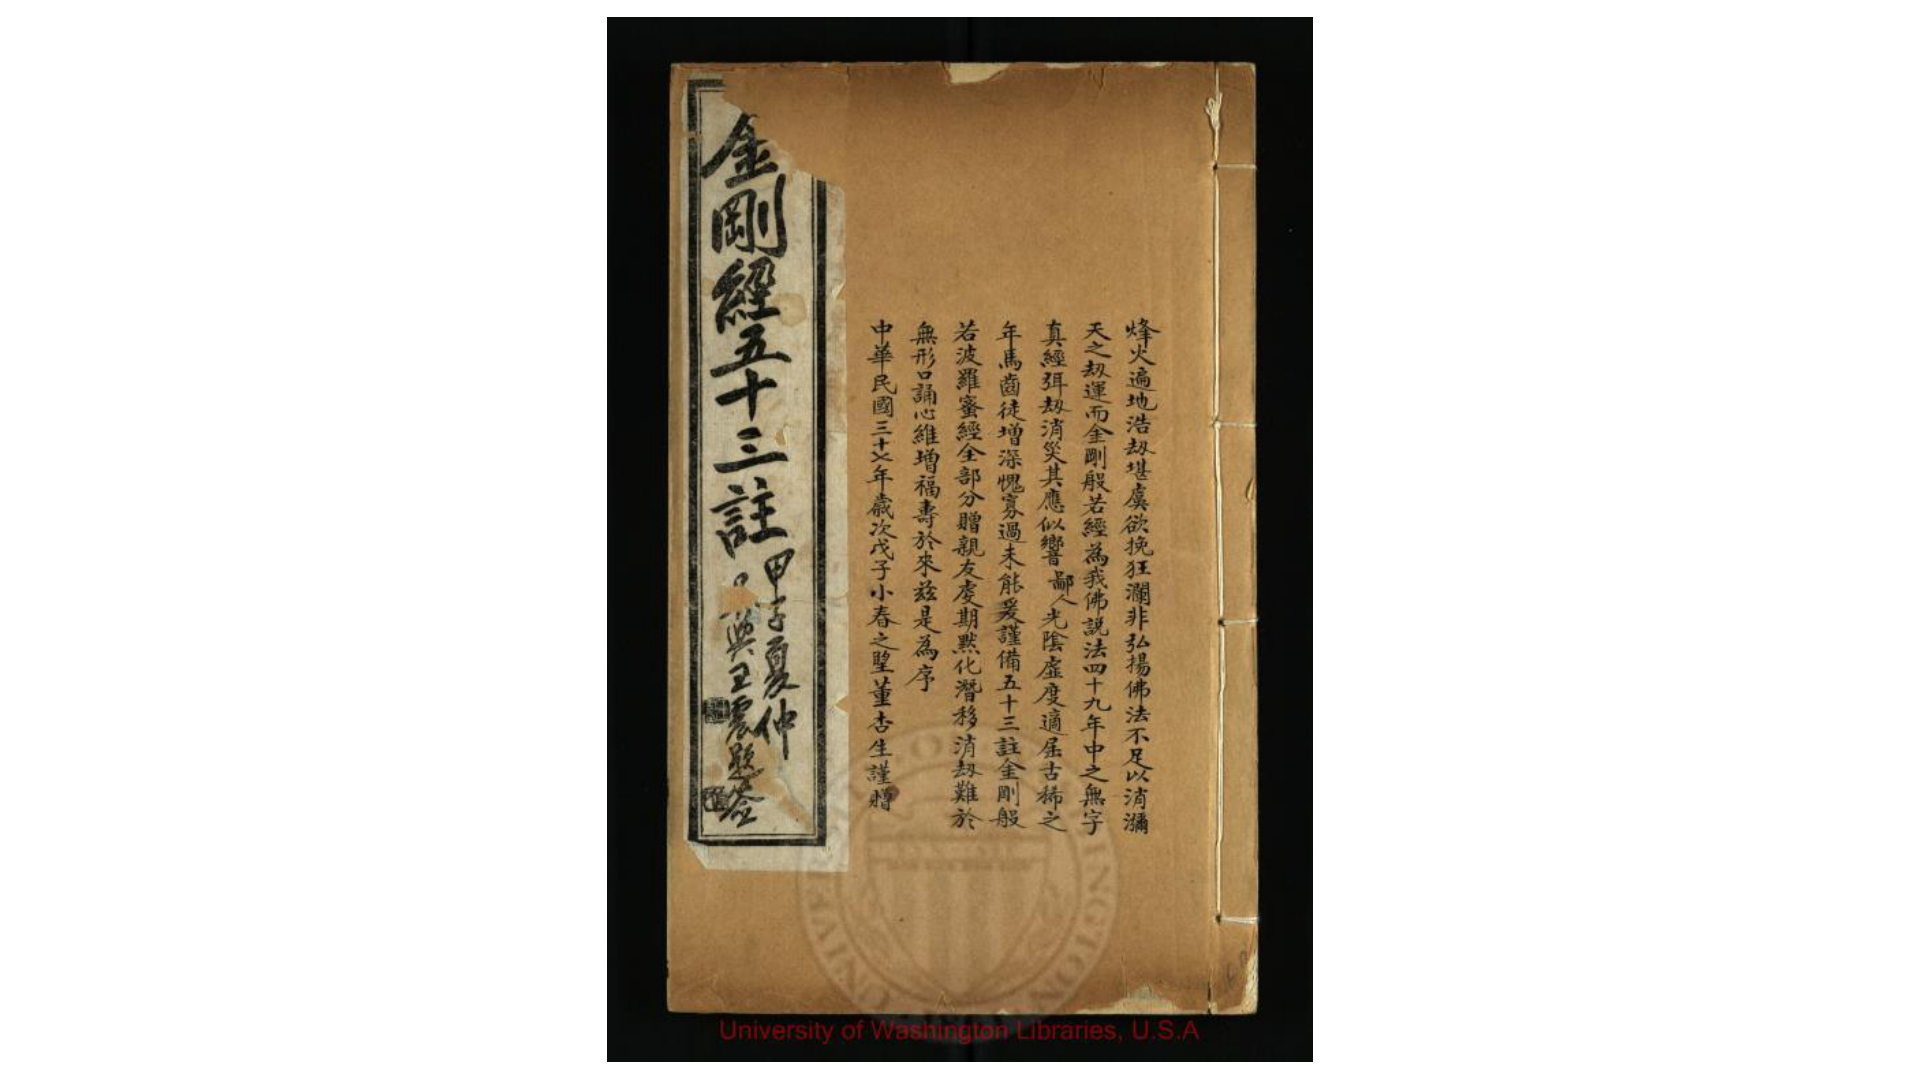 烽火遍地浩劫堪虞欲挽狂瀾非弘揚佛法不足以消瀰
天之劫運而金剛般若經為我佛説法四十九年中之無字
真經弭劫消災其應似響鄙人光陰虛度適屆古稀之
年馬齒徒增深愧寡過未能爰謹備五十三註金剛般
若波羅蜜經全部分贈親友虔期默化潛移消劫難於
無形口誦心維增福壽於來兹是為序
中華民國三十七年歲次戊子小春之望董杏生謹贈
金剛經五十三註
甲子夏仲
興王震題簽
University of Washington Libraries, U.S.A